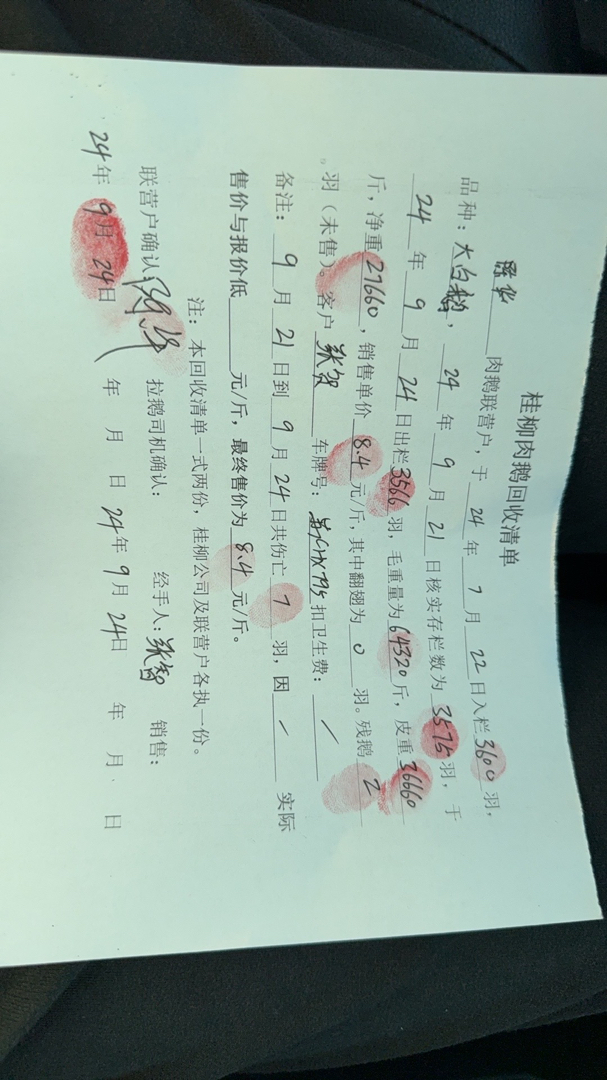 桂柳肉鹅回收清单
华 肉鹅联营户，于 24 年 7 月 22 日入栏 3600 羽，
品种：大白鹅， 24 年 9 月 21 日核实存栏数为 3575 羽，于
24 年 9 月 24 日出栏 3566 羽，毛重量为 64320 斤，皮重 36660
斤，净重 27660 ，销售单价 8.4 元/斤，其中翻翅为 0 羽。残鹅 2
羽（未售）。客户 张智 车牌号： 扣卫生费： /
备注： 9 月 21 日到 9 月 24 日共伤亡 7 羽，因 / 实际
售价与报价低 元/斤，最终售价为 8.4 元/斤。
注：本回收清单一式两份，桂柳公司及联营户各执一份。
联营户确认： 拉鹅司机确认： 经手人：张智 销售：
24 年 9 月 24 日 年 月 日 24 年 9 月 24 日 年 月 日